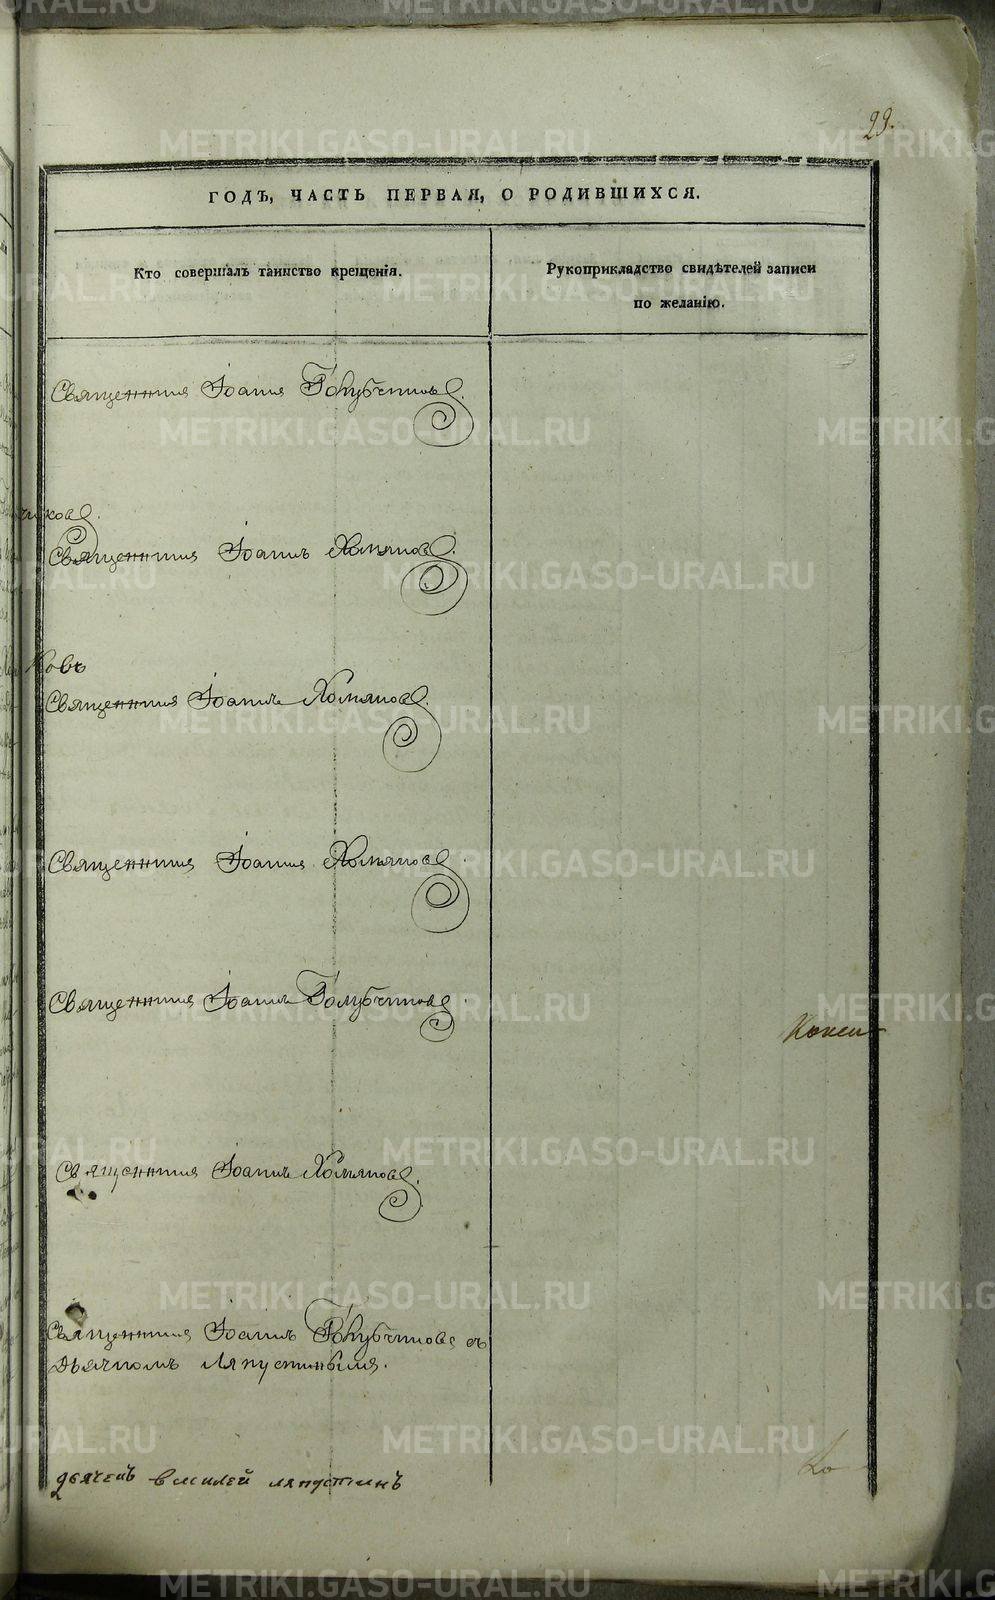 29.
ГОДЪ, ЧАСТЬ ПЕРВАЯ, О РОДИВШИХСЯ.
Кто совершалъ таинство крещенія.
Рукоприкладство свидѣтелей записи
по желанію.
Священникъ Іоаннъ Голубчиковъ.
чиковъ.
Священникъ Іоаннъ Хомяковъ.
ковъ
Священникъ Іоаннъ Хомяковъ.
Священникъ Іоаннъ Хомяковъ.
Священникъ Іоаннъ Голубчиковъ.
Священникъ Іоаннъ Хомяковъ.
Священникъ Іоаннъ Голубчиковъ съ
Дьячкомъ Ляпустинымъ.
дьячекъ василей ляпустинъ
METRIKI.GASO-URAL.RU